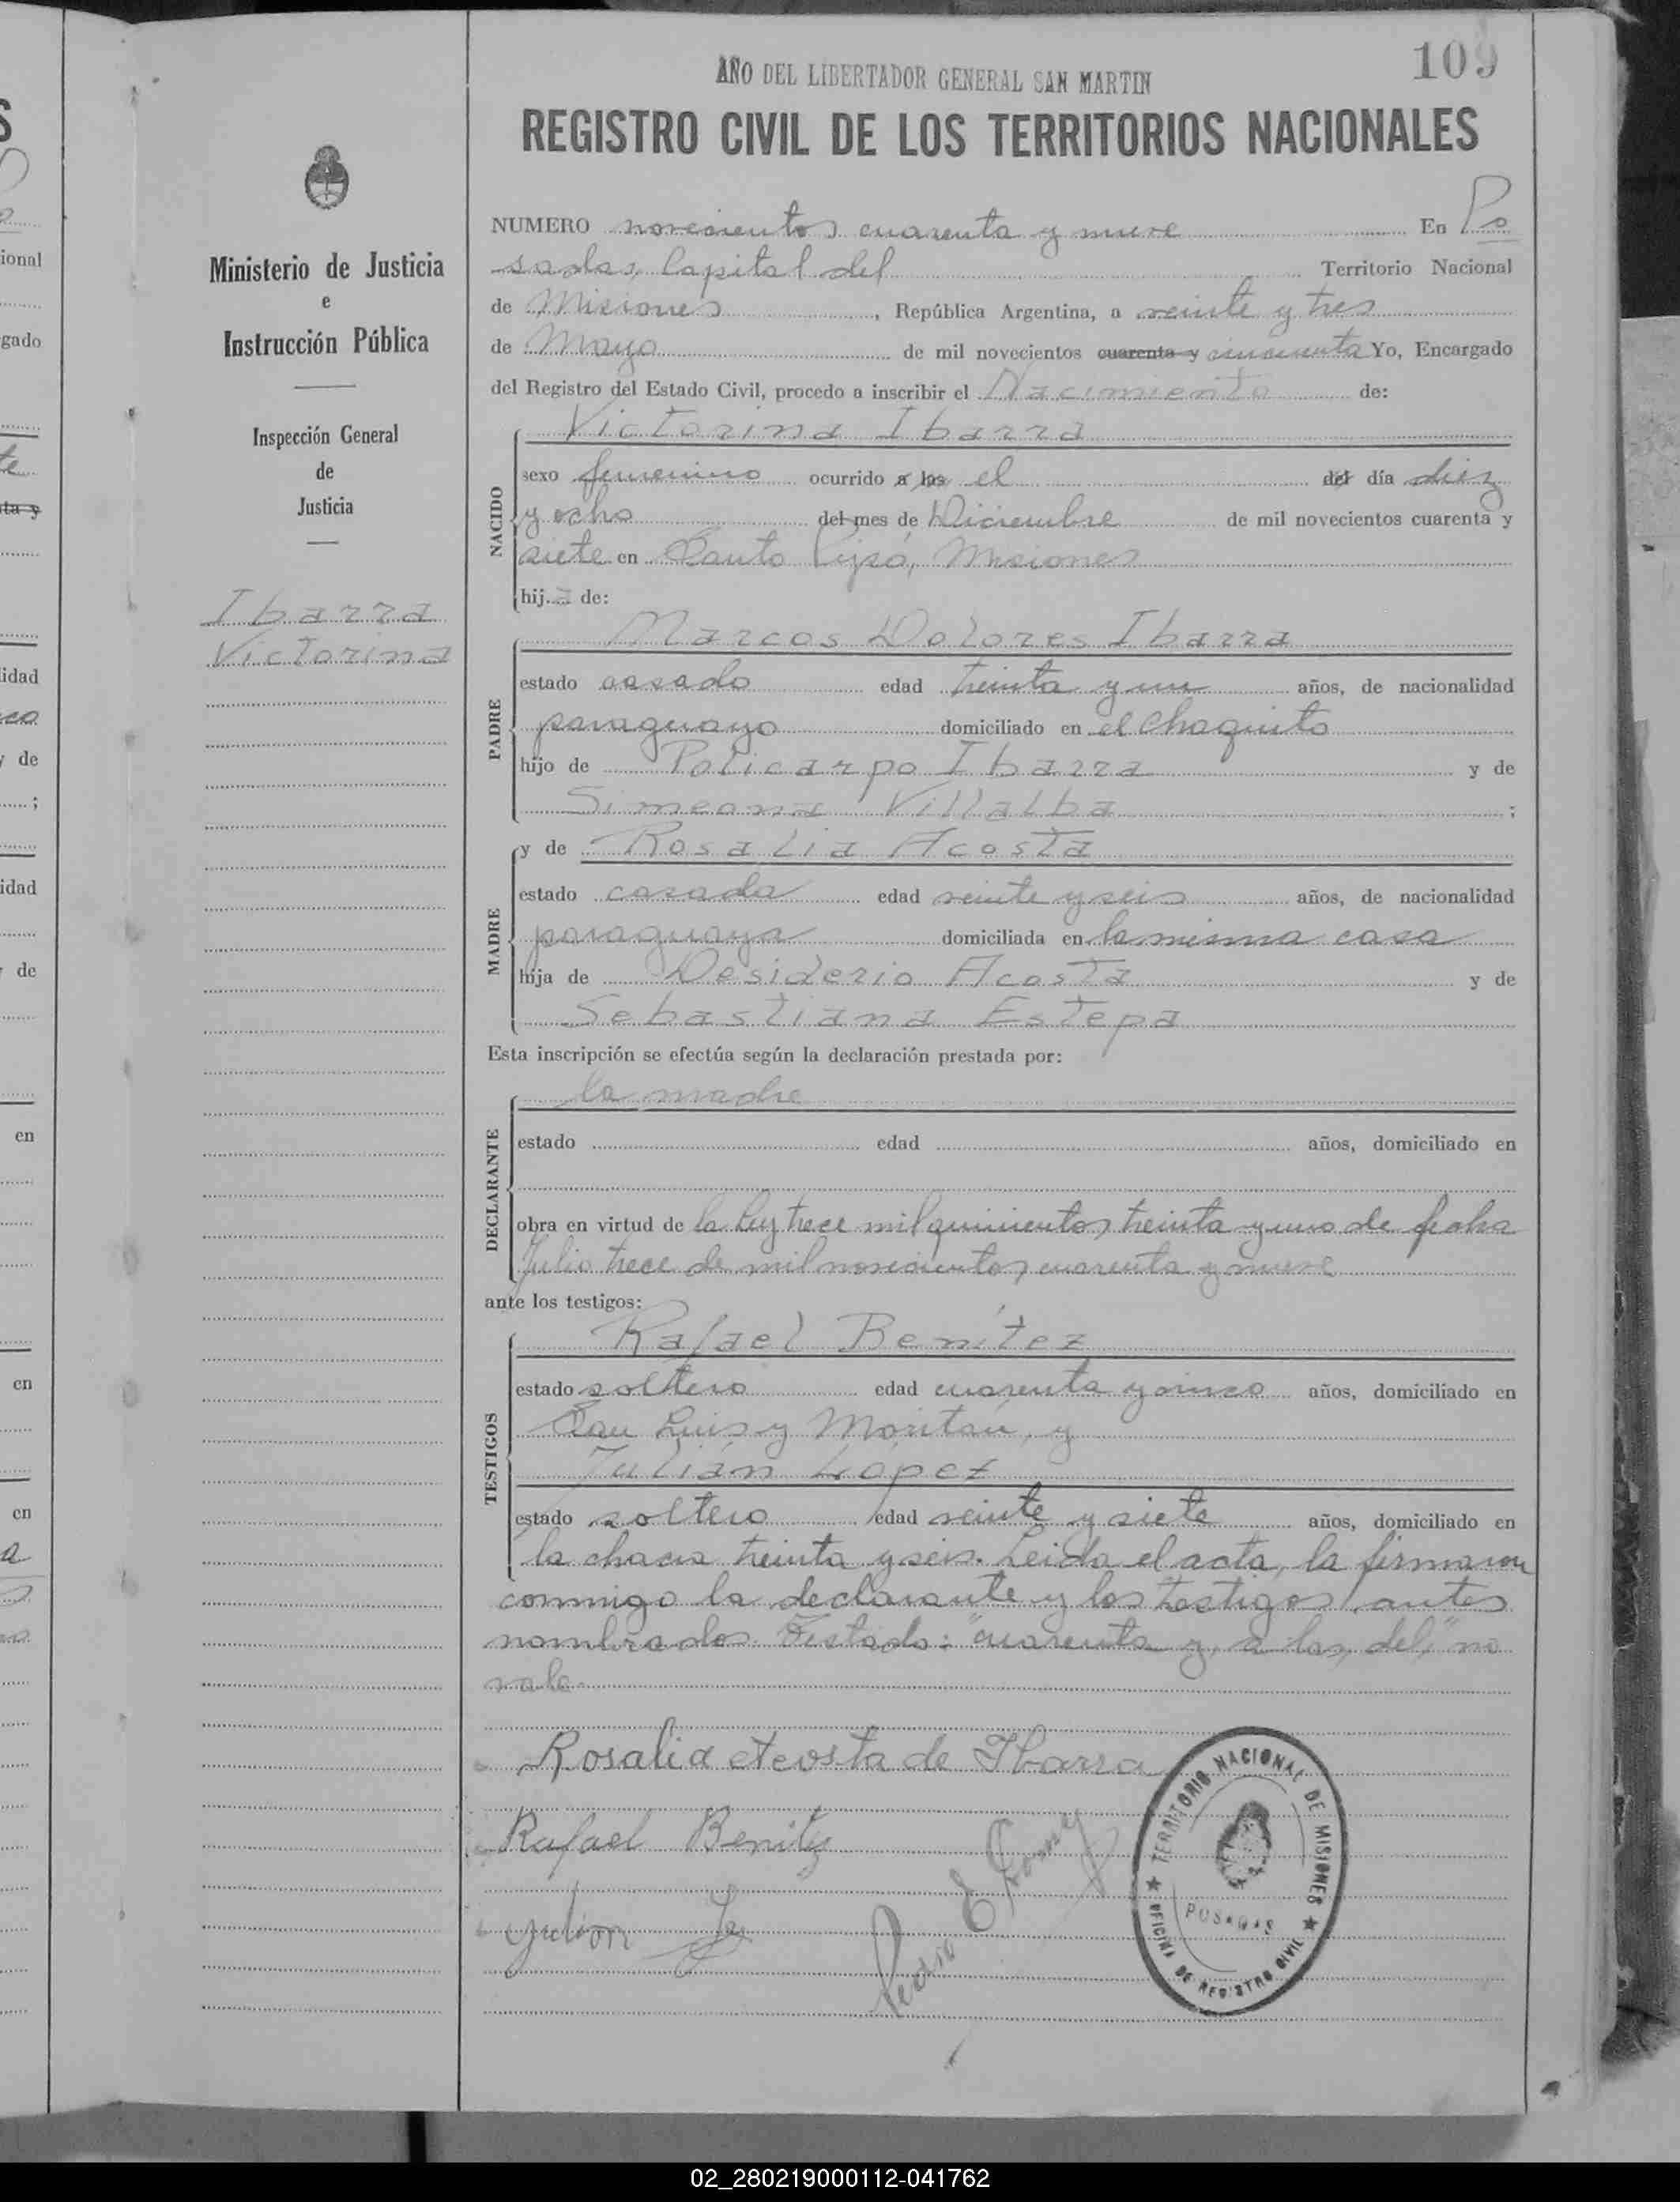 109
AÑO DEL LIBERTADOR GENERAL SAN MARTIN
REGISTRO CIVIL DE LOS TERRITORIOS NACIONALES
Ministerio de Justicia
e
Instrucción Pública
Inspección General
de
Justicia
Ibarra
Victorina
NUMERO novecientos cuarenta y nueve En Po
sadas, Capital del Territorio Nacional
de Misiones, República Argentina, a veinte y tres
de Mayo de mil novecientos cuarenta y cincuenta Yo, Encargado
del Registro del Estado Civil, procedo a inscribir el Nacimiento de:
Victorina Ibarra
NACIDO
sexo femenino ocurrido a las el del día diez
y ocho del mes de Diciembre de mil novecientos cuarenta y
siete en Santo Pipó, Misiones
hija de:
Marcos Dolores Ibarra
PADRE
estado casado edad treinta y un años, de nacionalidad
paraguayo domiciliado en el Chaquito
hijo de Policarpo Ibarra y de
Simeona Villalba ;
y de Rosalia Acosta
MADRE
estado casada edad veinte y seis años, de nacionalidad
paraguaya domiciliada en la misma casa
hija de Desiderio Acosta y de
Sebastiana Estepa
Esta inscripción se efectúa según la declaración prestada por:
la madre
DECLARANTE
estado edad años, domiciliado en
obra en virtud de la Ley trece mil quinientos treinta y uno de fecha
Julio trece de mil novecientos cuarenta y nueve
ante los testigos:
Rafael Benítez
TESTIGOS
estado soltero edad cuarenta y cinco años, domiciliado en
San Luis y y
Julián López
estado soltero edad veinte y siete años, domiciliado en
la chacra treinta y seis. Leida el acta, la firmaron
conmigo la declarante y los testigos antes
nombrados. Testado: "cuarenta y, a las, del," no
vale-
Rosalia Acosta de Ibarra
Rafael Benitez
Julian
Pedro E Gomez
TERRITORIO NACIONAL DE MISIONES
POSADAS
OFICINA DE REGISTRO CIVIL
ional
gado
ta y
idad
y de
;
idad
de
en
en
en
02_280219000112-041762